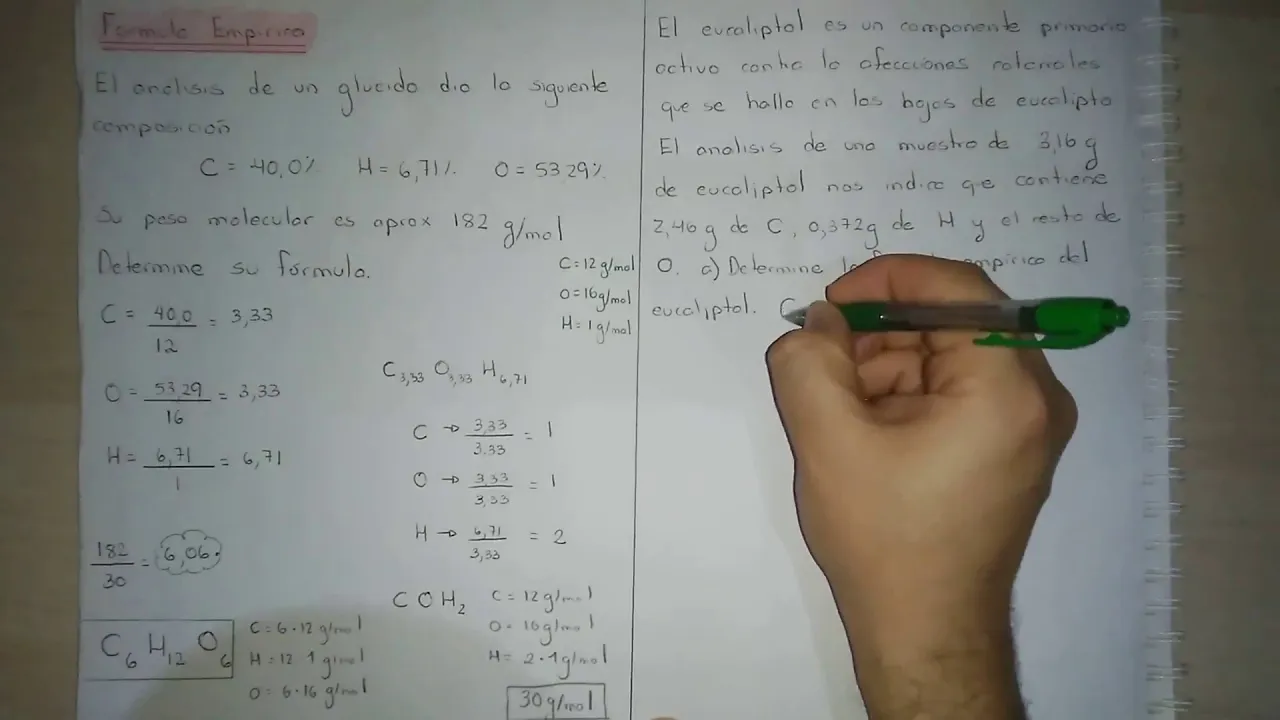 Formula Empirica
El analisis de un glucido dio la siguiente
composición
C = 40,0% H = 6,71% O = 53,29%
Su peso molecular es aprox 182 g/mol
Determine su fórmula.
C = 12 g/mol
O = 16 g/mol
H = 1 g/mol
C = 40,0/12 = 3,33
O = 53,29/16 = 3,33
H = 6,71/1 = 6,71
C3,33 O3,33 H6,71
C → 3,33/3.33 = 1
O → 3,33/3,33 = 1
H → 6,71/3,33 = 2
182/30 = 6,06
C O H2
C = 12 g/mol
O = 16 g/mol
H = 2·1 g/mol
30 g/mol
C6 H12 O6
C = 6·12 g/mol
H = 12 1 g/mol
O = 6·16 g/mol
El eucaliptol es un componente primario
activo contra la afecciones
que se halla en las hojas de eucalipto
El analisis de una muestra de 3,16 g
de eucaliptol nos indica que contiene
2,46 g de C, 0,372g de H y el resto de
O. a) Determine la empírica del
eucaliptol. C